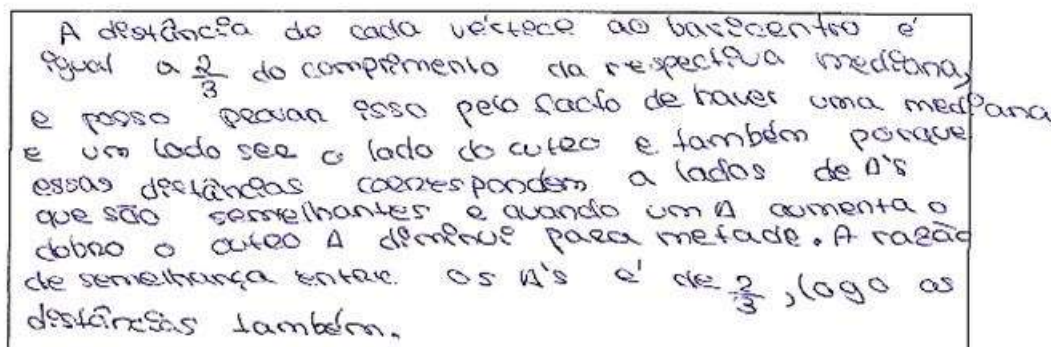 A distância do cada vértece ao baricentro é
igual a 2/3 do comprimento da respectiva mediana,
e posso provar isso pelo facto de haver uma mediana
e um lado ser o lado do outro e também porque
essas distâncias correspondem a lados de Δ's
que são semelhantes e quando um Δ aumenta o
dobro o outro Δ diminui para metade. A razão
de semelhança entre os Δ's é de 2/3, logo as
distâncias também.